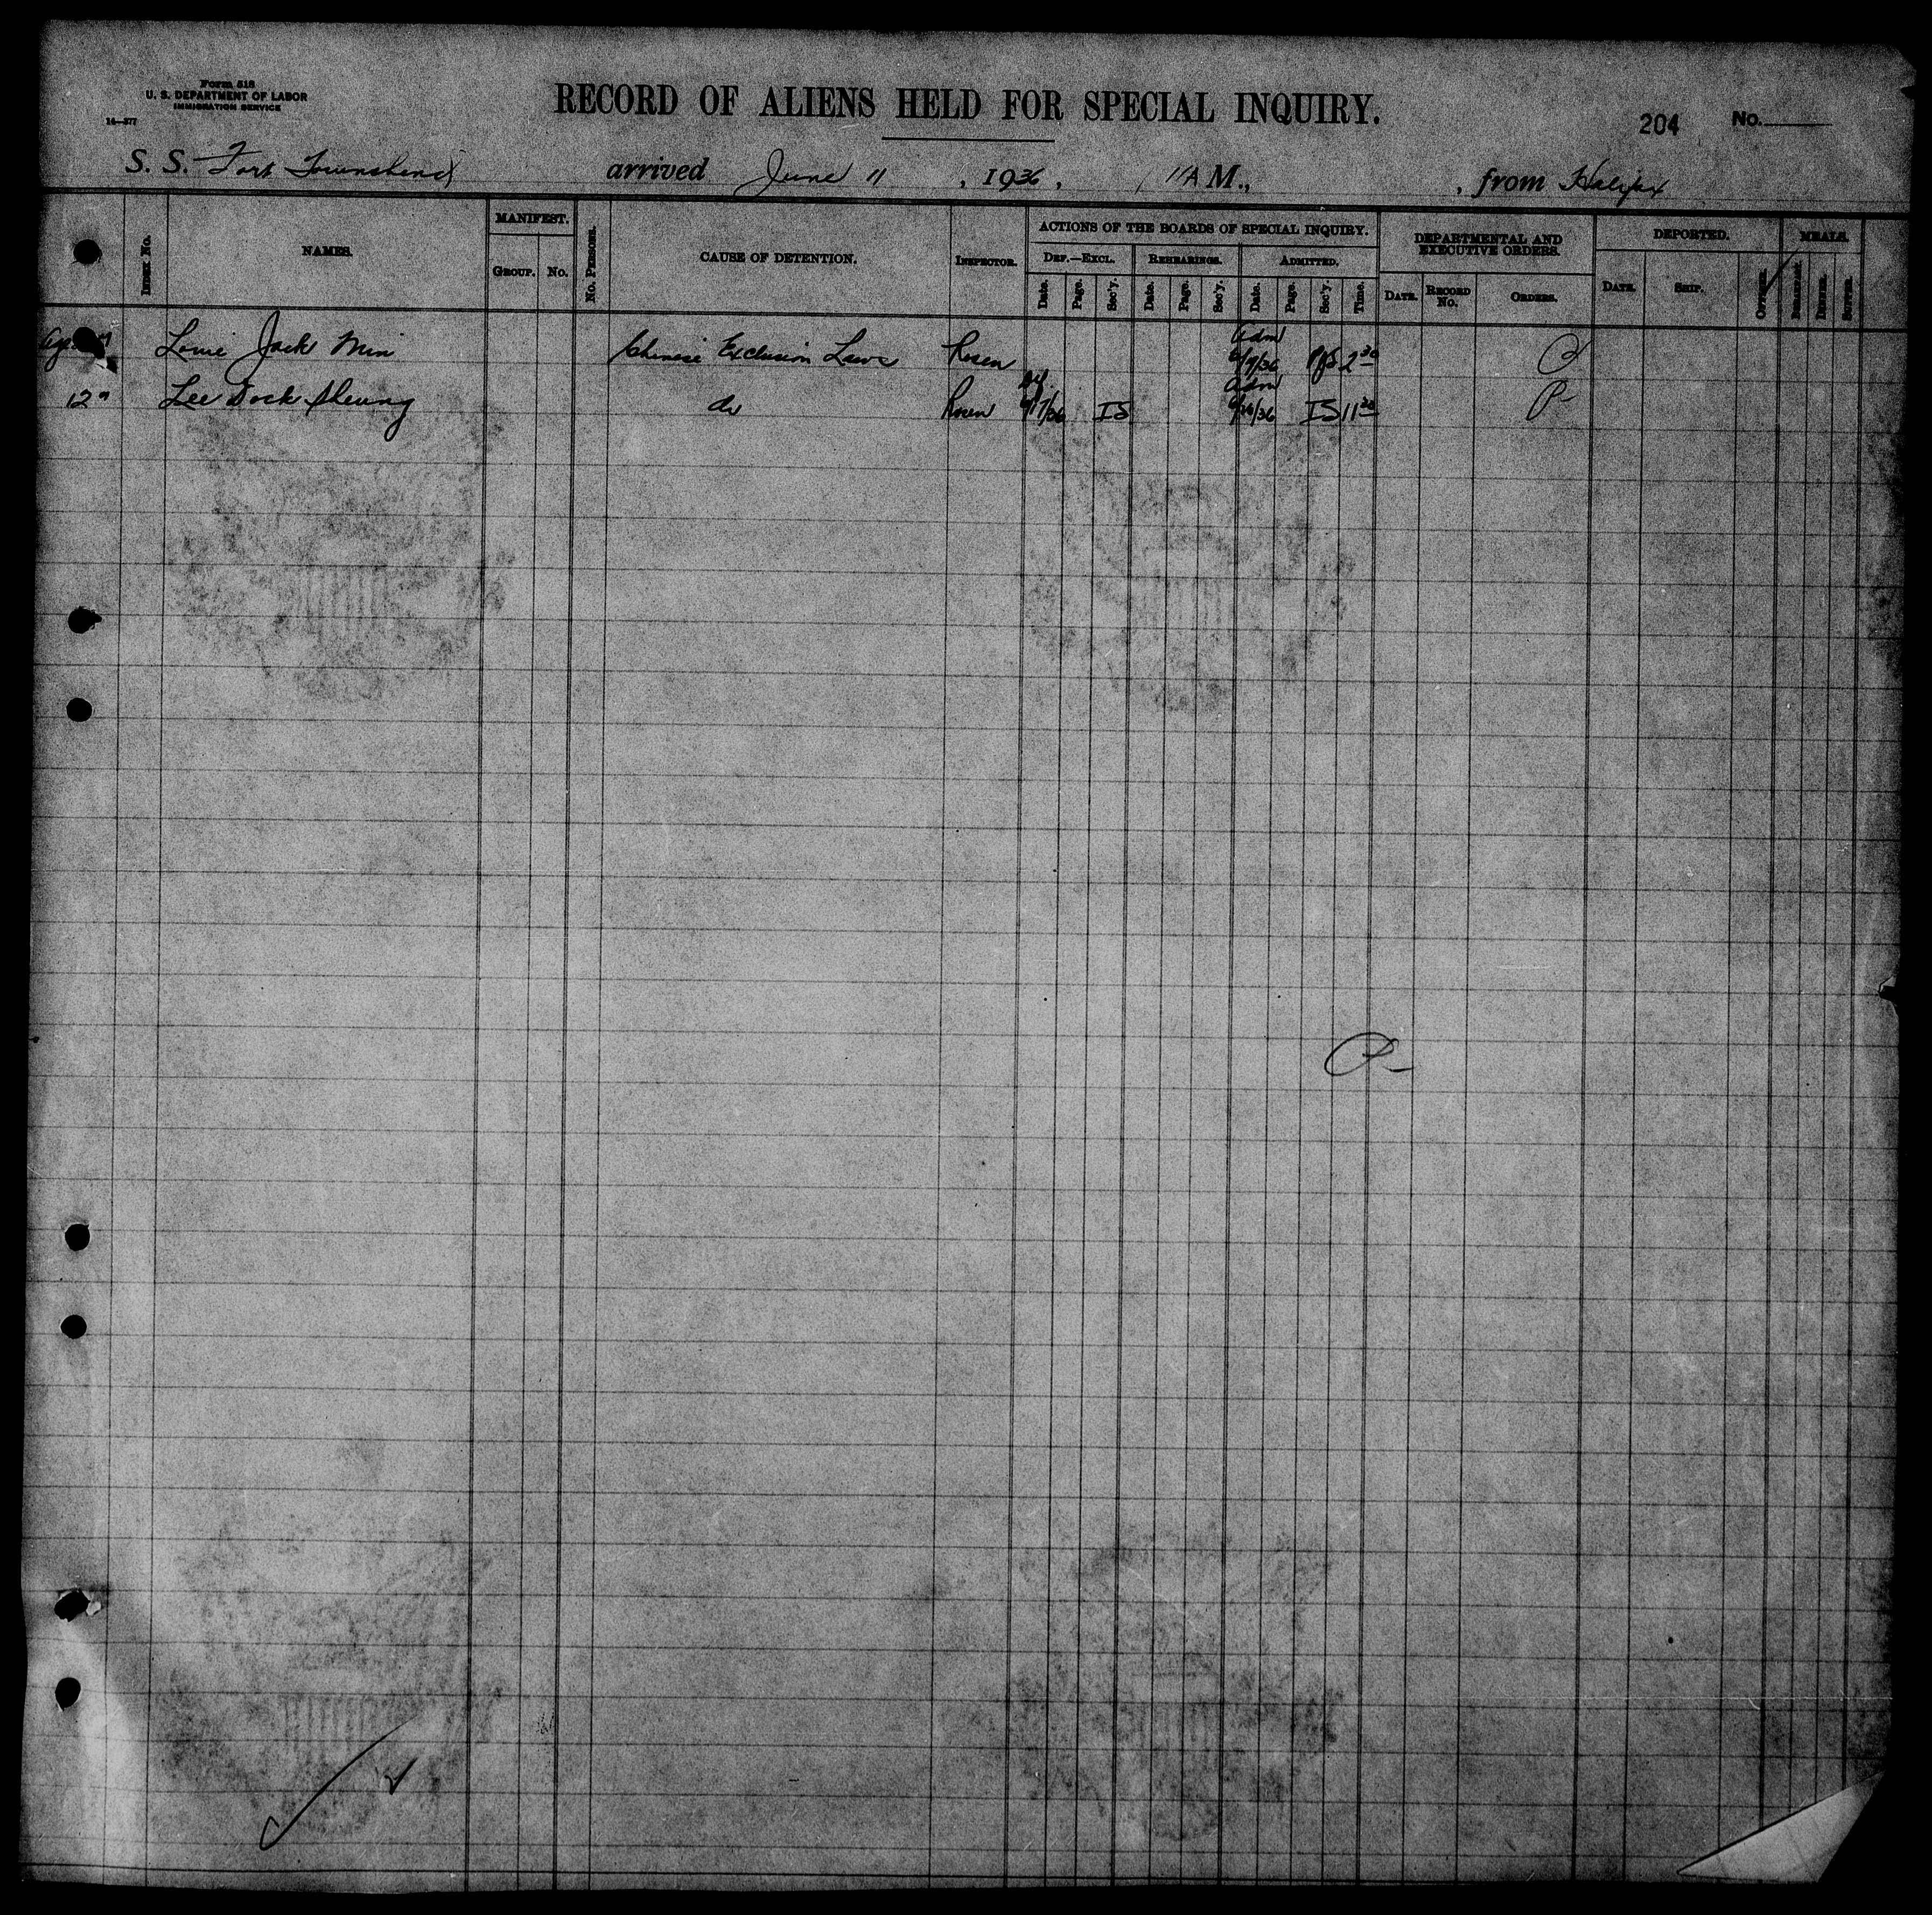 Form 518
U. S. DEPARTMENT OF LABOR
IMMIGRATION SERVICE
14—377
RECORD OF ALIENS HELD FOR SPECIAL INQUIRY.
204 No.
S. S. Fort Townshend arrived June 11, 1936, 11 A M., , from Halifax
INDEX No. NAMES. MANIFEST. GROUP. No. No. PERSONS. CAUSE OF DETENTION. INSPECTOR. ACTIONS OF THE BOARDS OF SPECIAL INQUIRY. DEF.—EXCL. Date. Page. Sec'y. REHEARINGS. Date. Page. Sec'y. ADMITTED. Date. Page. Sec'y. Time. DEPARTMENTAL AND EXECUTIVE ORDERS. DATE. RECORD No. ORDERS. DEPORTED. DATE. SHIP. MEALS. BREAKFAST. DINNER. SUPPER.
Louie Jack Min Chinese Exclusion Laws Rosen Adm 2 30
12" Lee Dock Sheung do Rosen Def. 6/17/36 IS Adm IS 11 30